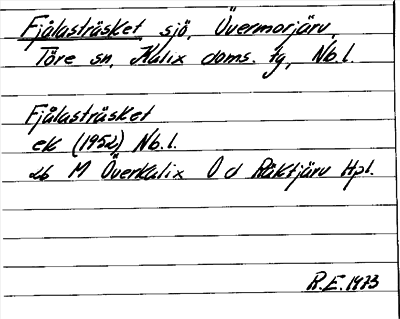 Fjålasträsket sjö, Övermorjärv,
Töre sn, Kalix doms. tg, Nb.l.
Fjålasträsket
ek (1952) Nb.l.
26 M Överkalix O d Räktjärv Hpl.
R.E. 1973